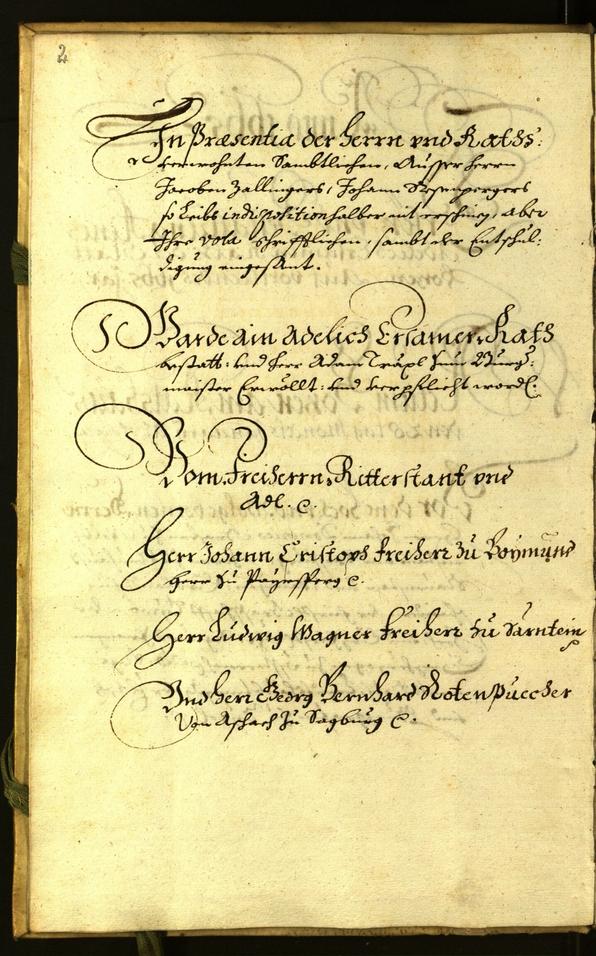 2
In Præsentia der Herrn vnd Raths:
verwohnten Sambtlichen, Ausser Herrn
Jacoben Zallingers, Johann
so Leibs indisposition halber nit erschinen, aber
Ihre vota schrifftlichen, sambt der Entschul:
digung eingesant.
Warde ain Adelich Ersamer Rath
bestätt: vnd Herr Adam Träxl zum Burg:
maister Erwöllt: vnd verpflicht word.
Vom Freiherrn, Ritterstant vnd
Adl. &c.
Herr Johann Cristoph Freiherr zu Boÿmund
Herr zu Paÿrsperg &c.
Herr Ludwig Wagner Freiherr zu Särntein
Vnd Herr Georg Bernhard Rotenpuecher
Von Aschach zu Sagburg &c.